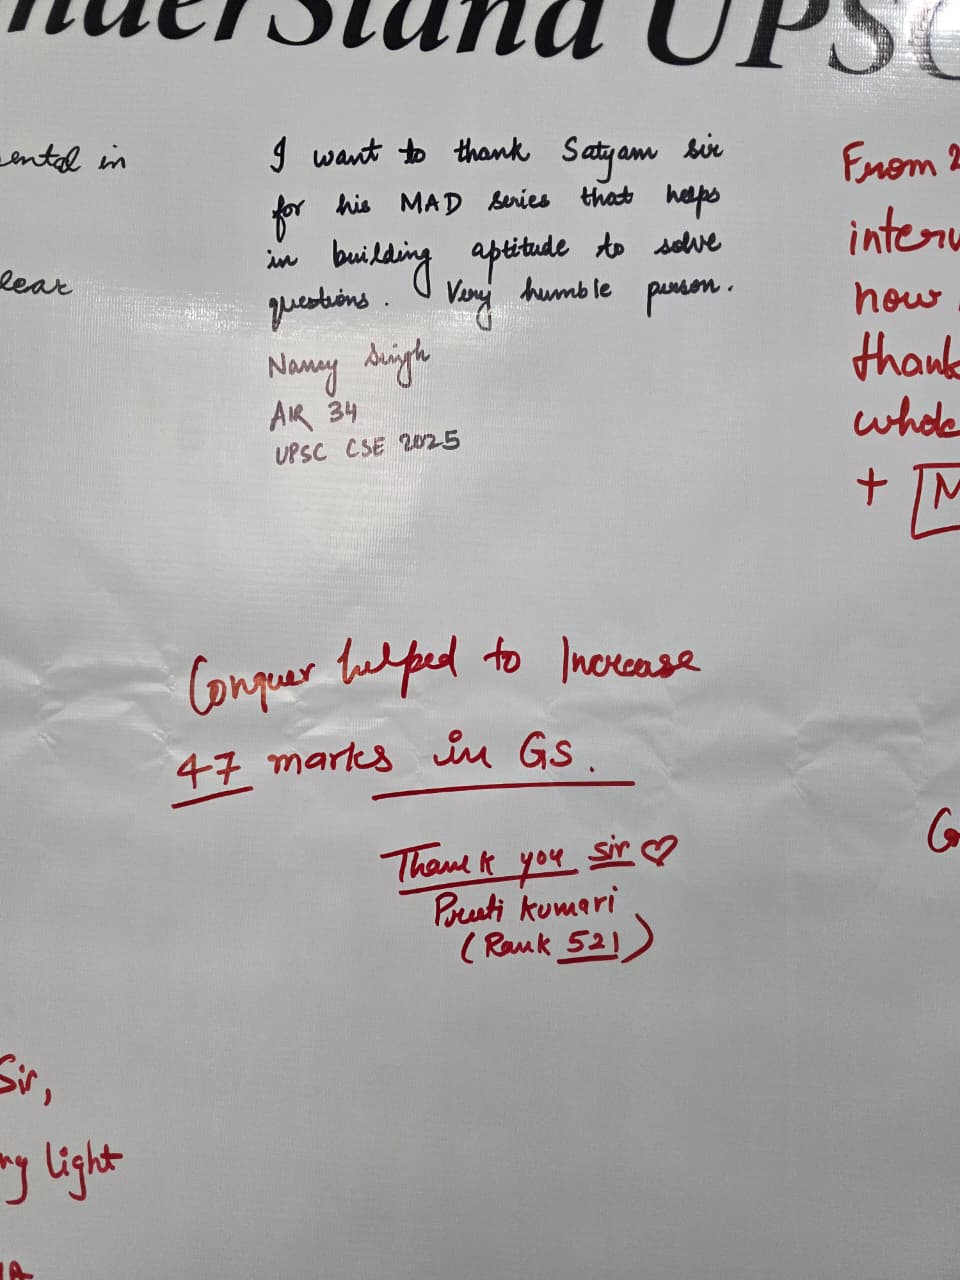 understand UPSC
ental in
lear
I want to thank Satyam sir
for his MAD series that helps
in building aptitude to solve
questions. Very humble person.
Nancy Singh
AIR 34
UPSC CSE 2025
From 2
interv
now
thank
whole
+ M
Conquer helped to Increase
47 marks in GS.
Thank you sir ♡
Preeti Kumari
(Rank 521)
G
Sir,
ng light